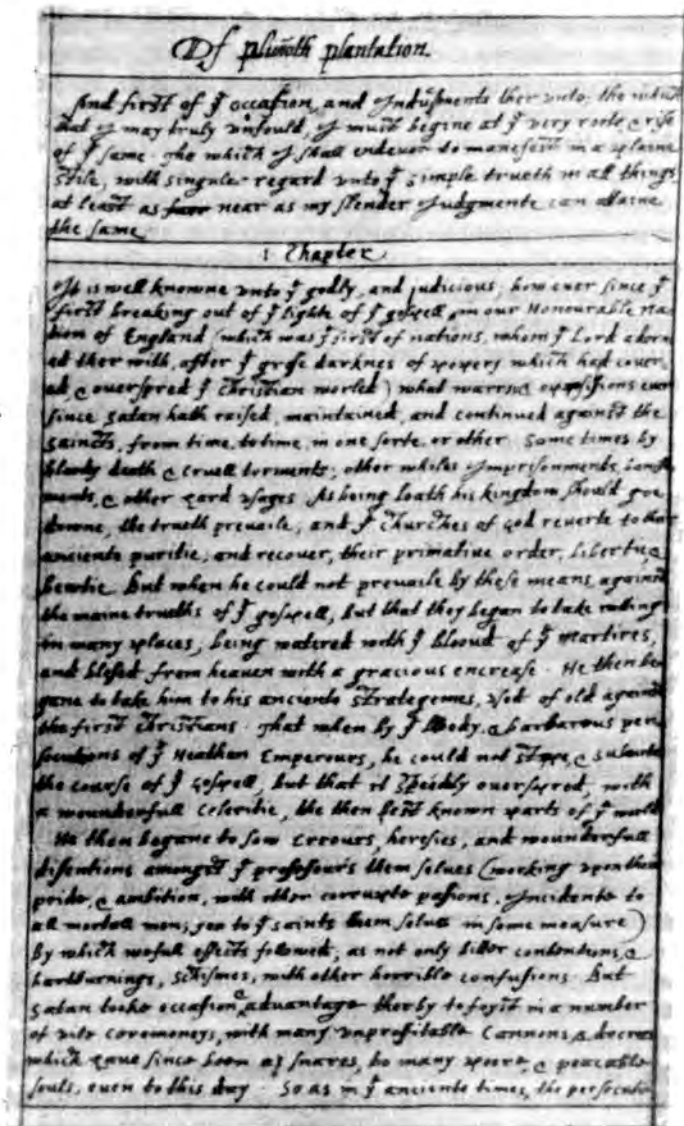 Of plimoth plantation.
And first of yͤ occasion, and Indusments ther unto; the which
that I may truly unfould, I must begine at yͤ very roote & rise
of yͤ same. The which I shall endevor to manefest in a plaine
stile; with singuler regard unto yͤ simple trueth in all things,
at least as near as my slender Judgmente can attaine
the same.
1. Chapter.
It is well knowne unto yͤ godly, and judicious; how ever since yͤ
first breaking out of yͤ lighte of yͤ gospell, in our Honourable na-
tion of England (which was yͤ first of nations, whom yͤ Lord adorn-
ed ther with, after yͤ grose darknes of popery which had cover-
ed, & overspred yͤ christian worled) what warrs, & oppossitions ever
since satan hath raised, maintained, and continued against the
saincts, from time, to time, in one sorte, or other. Some times by
bloody death & cruell torments; other whiles Imprisonments, banish-
ments, & other hard usages. As being loath his kingdom should goe
downe, the trueth prevaile; and yͤ churches of god reverte to their
anciente puritie; and recover, their primative order, libertie, &
bewtie. But when he could not prevaile by these means, against
the maine trueths of yͤ gospell, but that they began to take rotting
in many places; being watered with yͤ blooud of yͤ martires,
and blesed from heaven with a gracious encrease. He then be-
gane to take him to his anciente strategemes, used of old against
the first christians. That when by yͤ bloody, & barbarous per-
secutions of yͤ Heathen Emperours, he could not stoppe, & subverte
the course of yͤ Gospell; but that it speedily overspred, with
a wounderfull celeritie, the then best known parts of yͤ world.
He then begane to sow errours, heresies, and wounderfull
disentions amongst yͤ professours them selves (working upon their
pride, & ambition, with other corrupte passions, Incidente to
all mortall men; yea to yͤ saints them selves in some measure)
by which wofull effects followed; as not only bitter contentions, &
hartburnings, schismes, with other horrible confusions. But
satan tooke occasion & advantage therby to foyst in a number
of vile ceremoneys, with many unproffitable Cannons, & decrees
which have since been as snares, to many poore, & peaceable
souls, even to this day. So as in yͤ anciente times, the persecutions